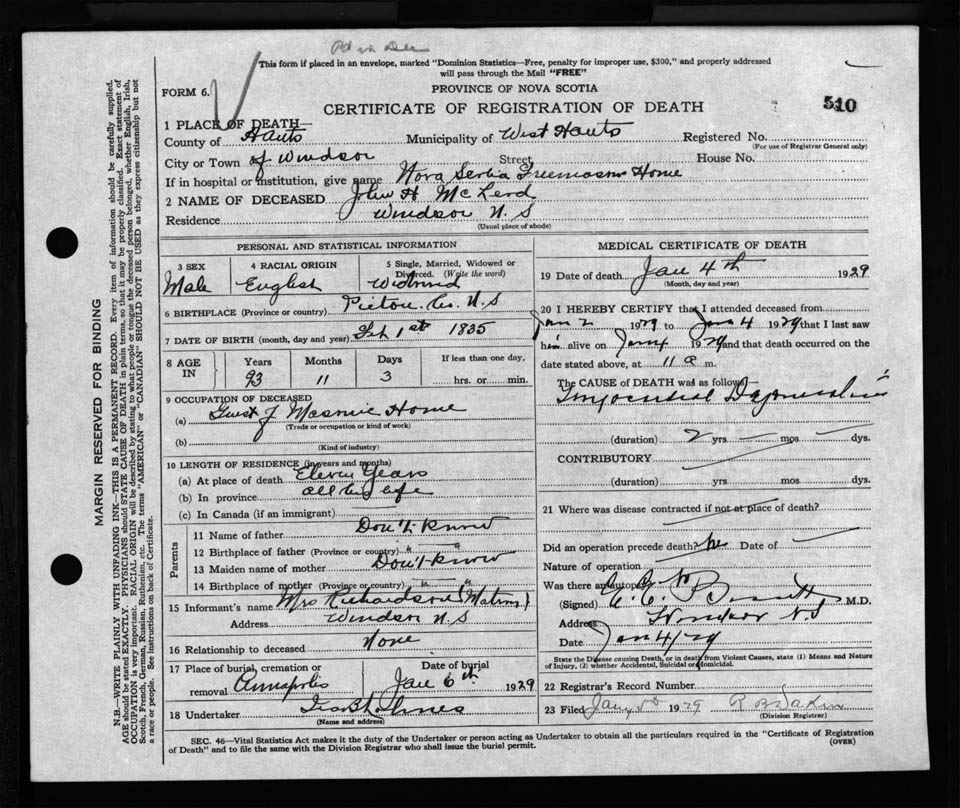 This form if placed in an envelope, marked "Dominion Statistics—Free, penalty for improper use, $300," and properly addressed
will pass through the Mail "FREE"
FORM 6.
PROVINCE OF NOVA SCOTIA
CERTIFICATE OF REGISTRATION OF DEATH
510
1 PLACE OF DEATH—
County of Hants Municipality of West Hants Registered No.
(For use of Registrar General only)
City or Town of Windsor Street House No.
If in hospital or institution, give name Nova Scotia Freemasons Home
2 NAME OF DECEASED John H
Residence Windsor N. S
(Usual place of abode)
PERSONAL AND STATISTICAL INFORMATION
3 SEX 4 RACIAL ORIGIN 5 Single, Married, Widowed or
Divorced. (Write the word)
Male English Widowed
6 BIRTHPLACE (Province or country) Pictou. Co. N. S
7 DATE OF BIRTH (month, day and year) Feb 1st 1835
8 AGE IN Years Months Days If less than one day,
93 11 3 hrs. or min.
9 OCCUPATION OF DECEASED
(a) Guest of Masonic Home
(Trade or occupation or kind of work)
(b)
(Kind of industry)
10 LENGTH OF RESIDENCE (in years and months)
(a) At place of death Eleven Years
(b) In province all his life
(c) In Canada (if an immigrant)
Parents
11 Name of father Don't know
12 Birthplace of father (Province or country) " "
13 Maiden name of mother Don't know
14 Birthplace of mother (Province or country) " "
15 Informant's name Mrs Richardson (Matron)
Address Windsor N. S
16 Relationship to deceased None
17 Place of burial, cremation or Date of burial
removal Annapolis Jan 6th 1929
18 Undertaker
(Name and address)
MEDICAL CERTIFICATE OF DEATH
19 Date of death Jan 4th 1929
(Month, day and year)
20 I HEREBY CERTIFY that I attended deceased from
Jan 2 1929 to Jan 4 1929 that I last saw
him alive on Jan 4 1929 and that death occurred on the
date stated above, at 11 a m.
The CAUSE OF DEATH was as follows—
Myocardial Degeneration
(duration) 2 yrs mos dys.
CONTRIBUTORY
(duration) yrs mos dys.
21 Where was disease contracted if not at place of death?
Did an operation precede death? No Date of
Nature of operation
Was there an autopsy? No
(Signed) M.D.
Address Windsor N.S
Date Jan 4/29
State the Disease causing Death, or in death from Violent Causes, state (1) Means and Nature
of Injury, (2) whether Accidental, Suicidal or Homicidal.
22 Registrar's Record Number
23 Filed 1929
(Division Registrar)
SEC. 46—Vital Statistics Act makes it the duty of the Undertaker or person acting as Undertaker to obtain all the particulars required in the "Certificate of Registration
of Death" and to file the same with the Division Registrar who shall issue the burial permit. (OVER)
MARGIN RESERVED FOR BINDING
N.B.—WRITE PLAINLY WITH UNFADING INK—THIS IS A PERMANENT RECORD. Every item of information should be carefully supplied.
AGE should be stated EXACTLY. PHYSICIANS should STATE CAUSE OF DEATH in plain terms, so that it may be properly classified. Exact statement of
OCCUPATION is very important. RACIAL ORIGIN will be described by stating to what people or tongue the deceased person belonged, whether English, Irish,
Scotch, French, German, Russian, Ruthenian, etc. The terms "AMERICAN" or "CANADIAN" SHOULD NOT BE USED as they express citizenship but not
a race or people. See instructions on back of Certificate.